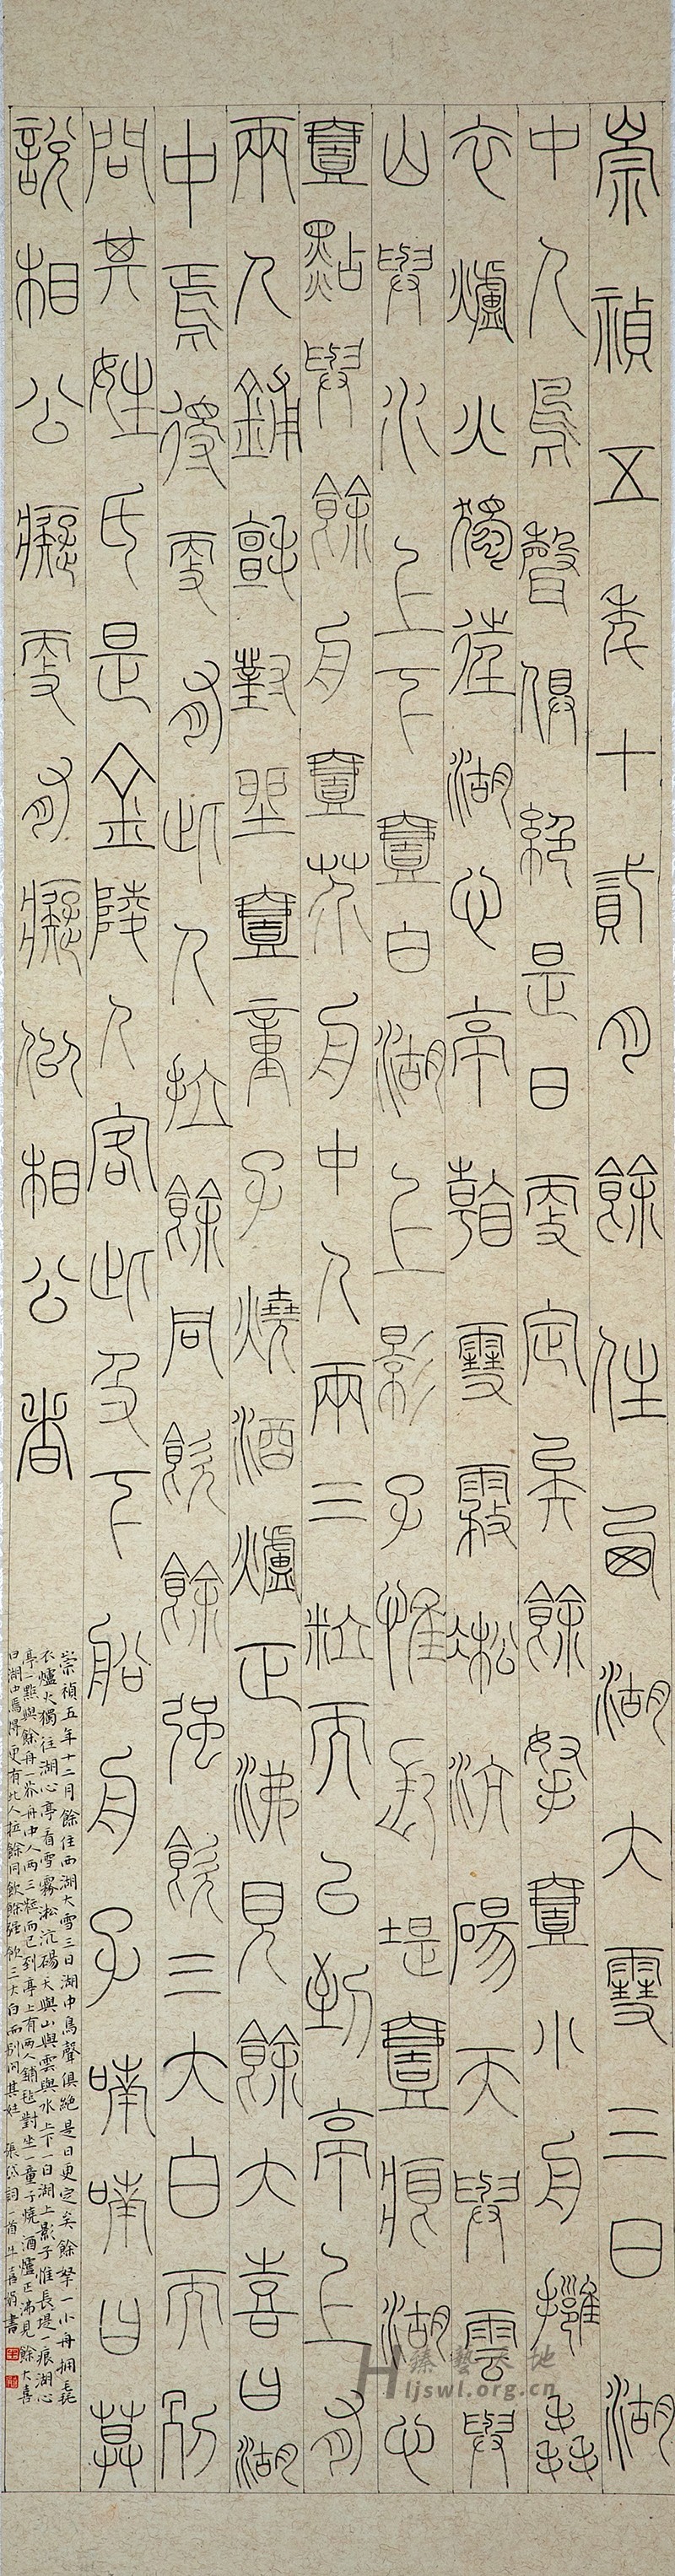 崇禎五年十貳月餘住西湖大雪三日湖
中人鳥聲俱絕是日更定矣餘拏壹小舟擁毳
衣爐火獨往湖心亭看雪霧凇沆碭天與雲與
山與水上下壹白湖上影子惟長堤壹痕湖心
壹點與餘舟壹芥舟中人兩三粒而已到亭上有
兩人鋪氈對坐壹童子燒酒爐正沸見餘大喜曰湖
中焉得更有此人拉餘同飲餘強飲三大白而別
問其姓氏是金陵人客此及下船舟子喃喃曰莫
說相公癡更有癡似相公者
崇禎五年十二月餘住西湖大雪三日湖中鳥聲俱絕是日更定矣餘拏一小舟拥毳
衣爐火獨往湖心亭看雪霧淞沆碭天與山與雲與水上下一白湖上影子惟長堤一痕湖心
亭一點與餘舟一芥舟中人兩三粒而已到亭上有兩人鋪氈對坐一童子燒酒爐正沸見餘大喜
曰湖中焉得更有此人拉餘同飲餘強飲三大白而別問其姓 張岱詞一首 書
臻藝天地
Hljswl.org.cn